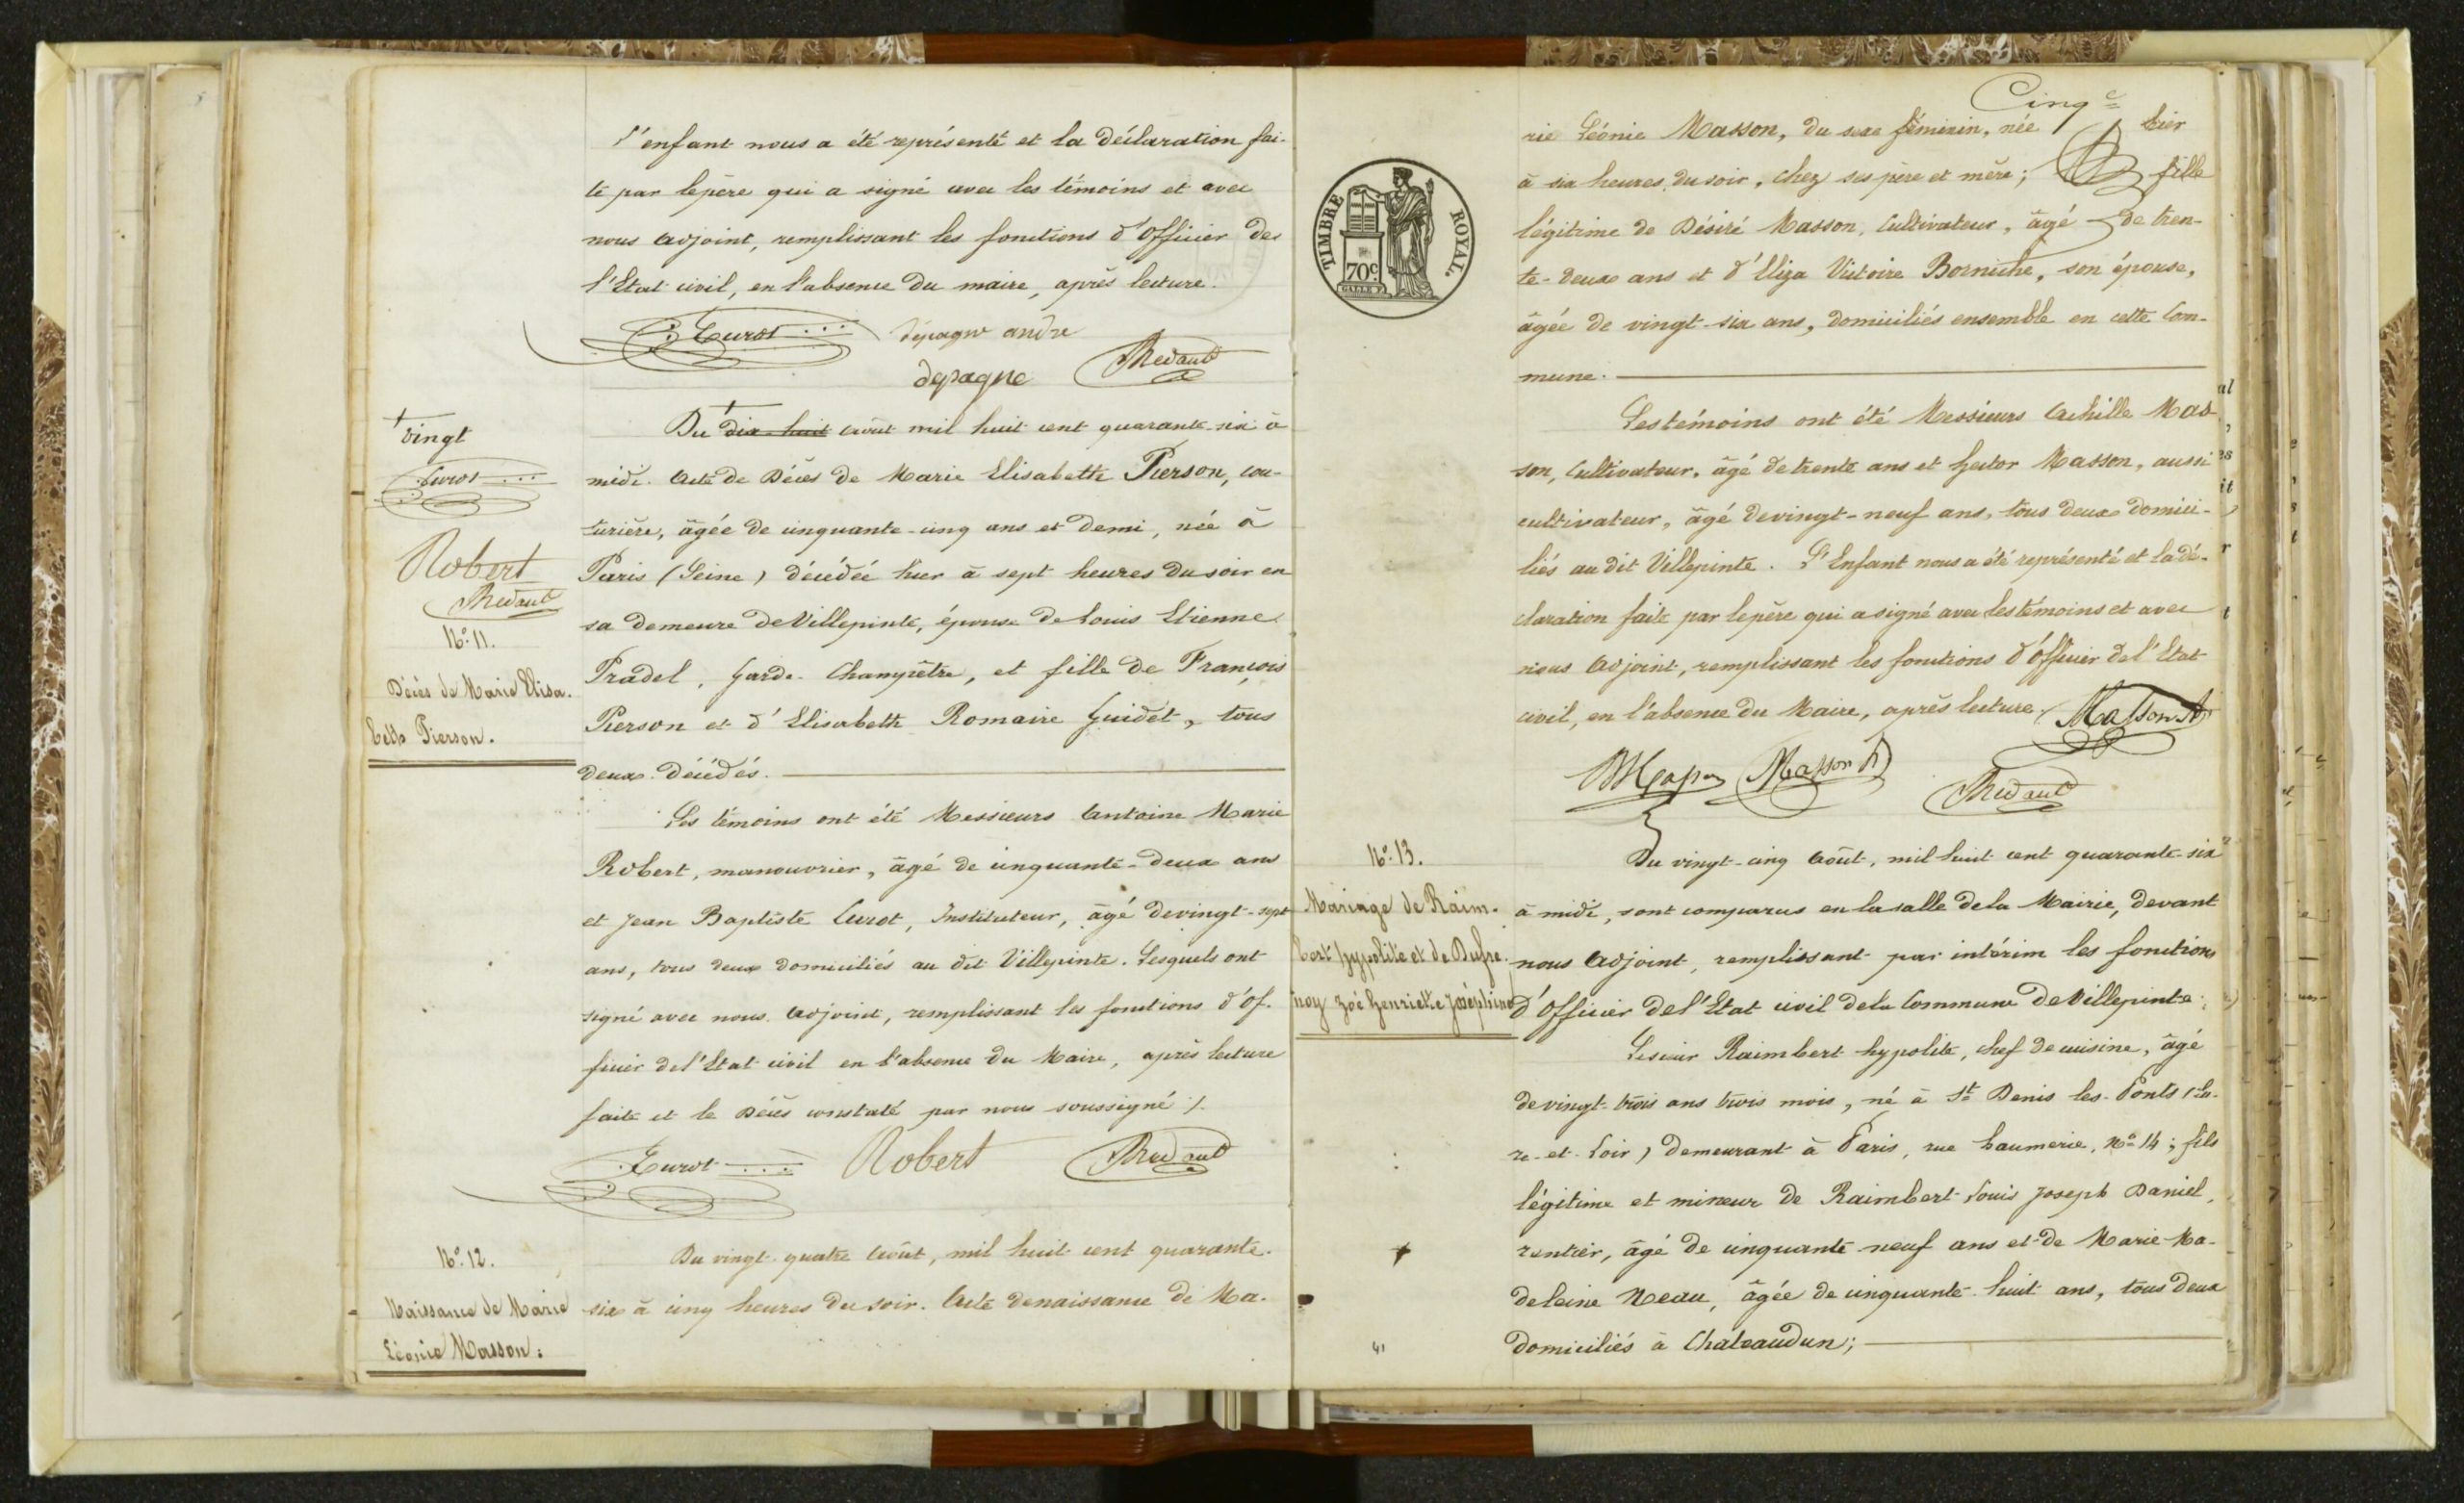 l'enfant nous a été représenté et la déclaration fai-
te par le père qui a signé avec les témoins et avec
nous adjoint, remplissant les fonctions d'officier de
l'Etat civil, en l'absence du maire, après lecture.
Curot depagne andre
depagneRedaut
+
Vingt
Curot
Robert
Redaut
N.º 11.
Décès de Marie Elisa-
beth Pierson.
Du + dix-huit août mil huit cent quarante-six à
midi. Acte de Décès de Marie Elisabeth Pierson, cou-
turière, âgée de cinquante-cinq ans et demi, née à
Paris (Seine) décédée hier à sept heures du soir en
sa demeure de Villepinte, épouse de Louis Etienne
Pradel, Garde-Champêtre, et fille de François
Pierson et d'Elisabeth Romaire Guidet, tous
deux décédés.
Les témoins ont été Messieurs Antoine Marie
Robert, manouvrier, âgé de cinquante-deux ans
et Jean Baptiste Curot, Instituteur, âgé de vingt-sept
ans, tous deux domiciliés au dit Villepinte. Lesquels ont
signé avec nous adjoint, remplissant les fonctions d'of-
ficier de l'Etat civil en l'absence du Maire, après lecture
faite et le Décès constaté par nous soussigné /.
Curot Robert Redaut
N.º 12.
Naissance de Marie
Léonie Masson.
Du vingt-quatre août, mil huit cent quarante-
six à cinq heures du soir. Acte de naissance de Ma-
Cinq e
TIMBRE ROYAL.
70c
rie Léonie Masson, du sexe féminin, née hier
à six heures du soir, chez ses père et mère; fille
légitime de Désiré Masson, Cultivateur, âgé de tren-
te-deux ans et d'Eliza Victoire Borniche, son épouse,
âgée de vingt-six ans, domiciliés ensemble en cette Com-
mune.
Les témoins ont été Messieurs Achille Mas-
son, Cultivateur, âgé de trente ans et Hector Masson, aussi
cultivateur, âgé de vingt-neuf ans, tous deux domici-
liés au dit Villepinte. L'Enfant nous a été représenté et la dé-
claration faite par le père qui a signé avec les témoins et avec
nous adjoint, remplissant les fonctions d'officier de l'Etat
civil, en l'absence du Maire, après lecture. Masson A
Masson Masson h
Redaut
N.º 13.
Mariage de Raim-
bert hypolite et de Dufre-
noy Zoé Henriette Joséphine
Du vingt-cinq août, mil huit cent quarante-six
à midi, sont comparus en la salle de la Mairie, devant
nous adjoint, remplissant par intérim les fonctions
d'officier de l'Etat civil de la Commune de Villepinte:
Le sieur Raimbert hypolite, chef de cuisine, âgé
de vingt-trois ans trois mois, né à St Denis les-Ponts (Eu-
re-et-Loir) demeurant à Paris, rue haumerie, Nº 14; fils
légitime et mineur de Raimbert Louis Joseph Daniel,
rentier, âgé de cinquante-neuf ans et de Marie-Ma-
deleine Neau, âgée de cinquante-huit ans, tous deux
domiciliés à Chateaudun;